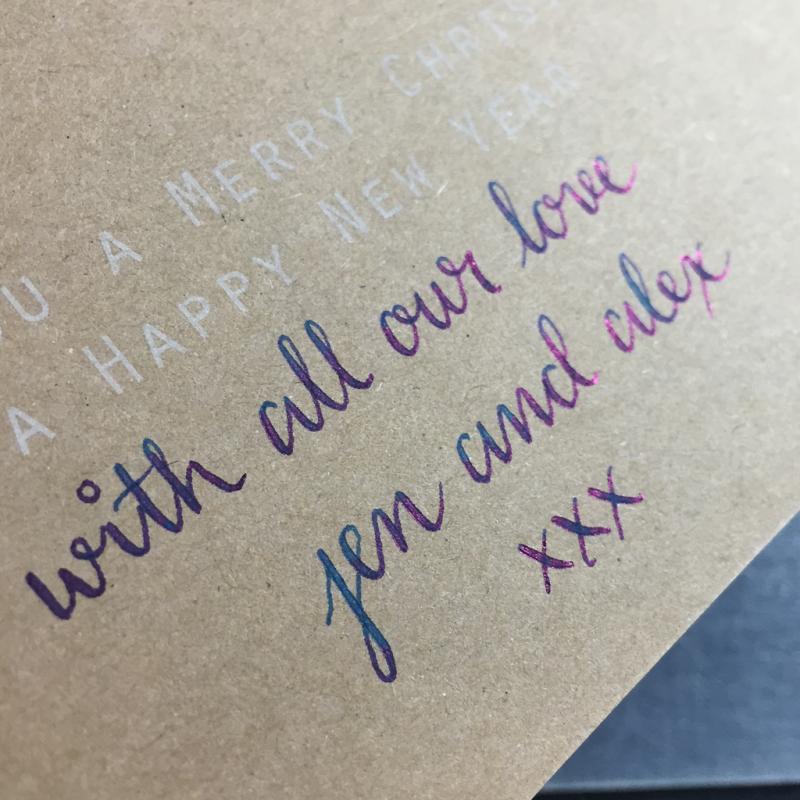 A MERRY
A HAPPY NEW YEAR
with all our love
jen and alex
xxx